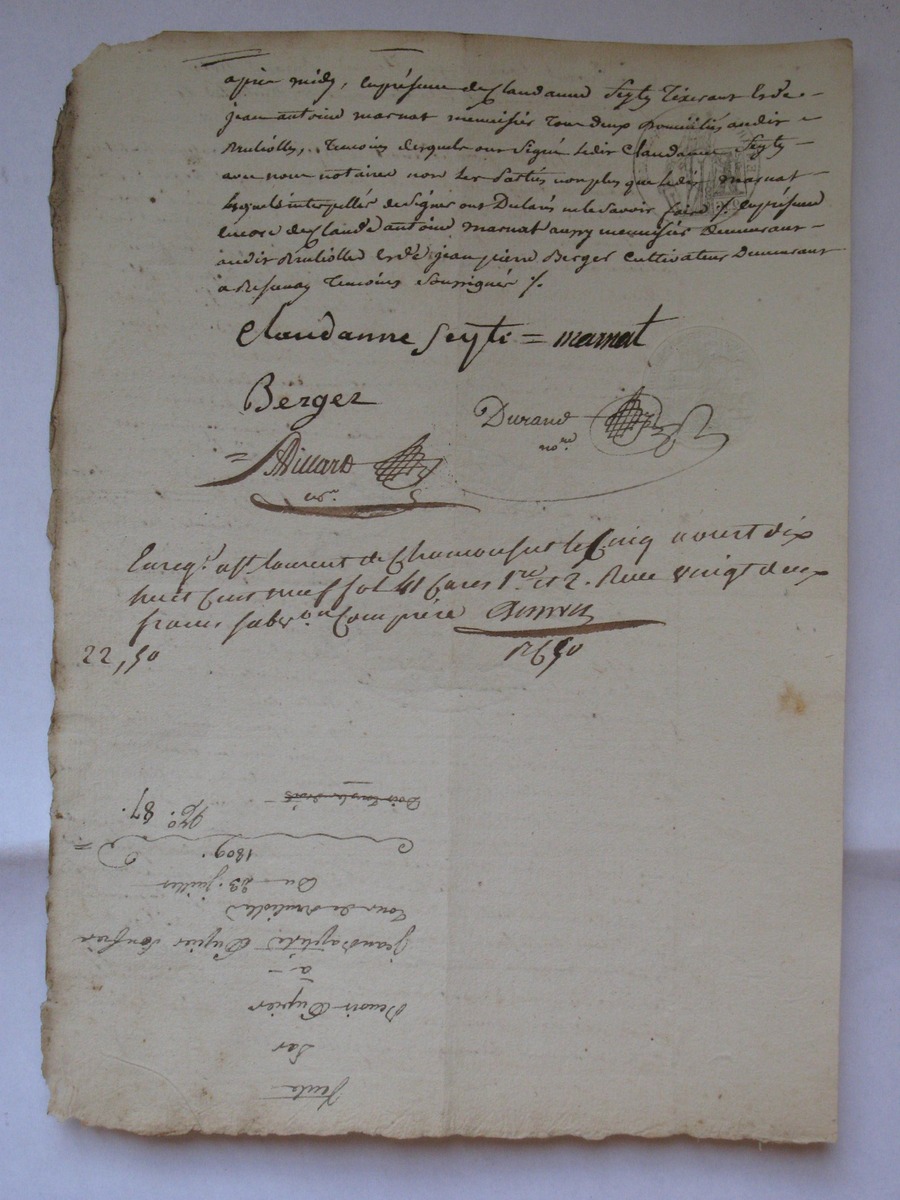 après midy, en présence de Claudanne Seyty Tixerant Et de
jean antoine marnat menuisier Tous deux Domiciliés audit
Brulioles, Temoins desquels ont Signé ledit Claudanne Seyty
avec nous notaires non les Parties non plus que ledit marnat
lesquels interpellés de Signer ont Déclaré ne le savoir faire /. En présence
encore de Claude antoine marnat aussy menuisier Demeurant
audit Brulioles Et de jean pierre Berger Cultivateur Demeurant
a Temoins Soussignés /.
Claudanne Seyti = marnat
Berger
Durand
nore.
= Villard
nore.
Enregé. a St. laurent de Chamousset le Cinq aoust dix
huit Cent neuf fol 41 Cases 1re. et 2. Recu vingt deux
francs subvon Comprise
22,50
Dois tous les droits
No. 87.
1809.
Du 23. juillet
Tous de Brulioles
jean Bâptiste Dupier Son frère
à
Benoit Dupier
Par
Vente